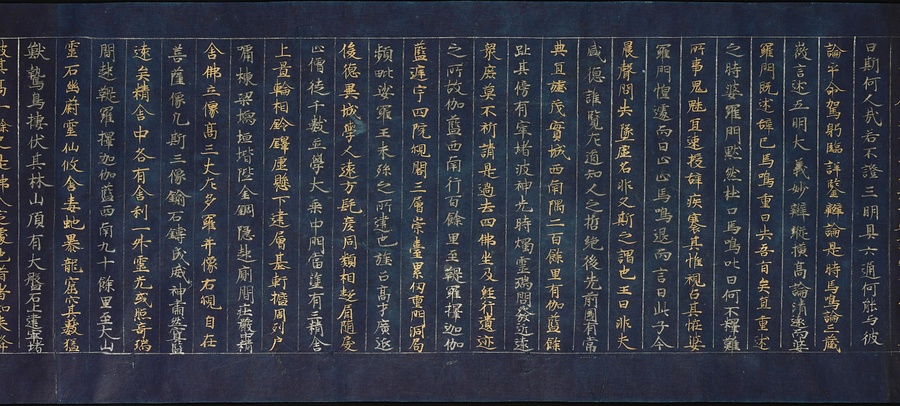 日斯何人哉若不證三明具六通何能与彼
論乎命駕躬臨詳鑒辯論是時馬鳴論三藏
微言述五明大義妙辯縱橫高論清遠而婆
羅門既述辭已馬鳴重曰失吾旨矣宜重述
之時婆羅門默然杜口馬鳴叱曰何不釋難
所事鬼魅宜速授辭疾褰其惟視占其恠婆
羅門惶遽而曰止馬鳴退而言曰此子今
晨聲問失墜虛名非久斯之謂也王曰非夫
盛德誰覽左道知人之哲絕後光前國有常
典宜旌茂實城西南隅二百餘里有伽藍餘
趾其傍有窣堵波神光時燭靈瑞間發近遠
衆庶莫不祈請是過去四佛坐及經行遺迹
之所故伽藍西南行百餘里至鞮羅擇迦伽
藍遲宇四院觀閣三層崇臺累仞重門洞局
頻毗娑羅王末孫之所建也旌召高才廣延
俊德異域學人遠方髦彥同類相趍肩隨戾
止僧徒千數並學大乘中門當塗有三精舍
上置輪相鈴鐸虛懸下建層基軒檻周列戶
牖棟梁壖垣階陛金銅隱起廁間莊嚴精
舍佛立像高三丈左多羅菩像右觀自在
菩薩像凡斯三像鍮石鑄成威神肅然冥鑒
遠矣精舍中各有舍利一升靈光或照奇瑞
間起鞮羅擇迦伽藍西南九十餘里至大山
雲石幽蔚靈仙攸舍毒蛇暴龍窟穴其藪猛
獸鷙鳥棲伏其林山頂有大盤石上建窣堵